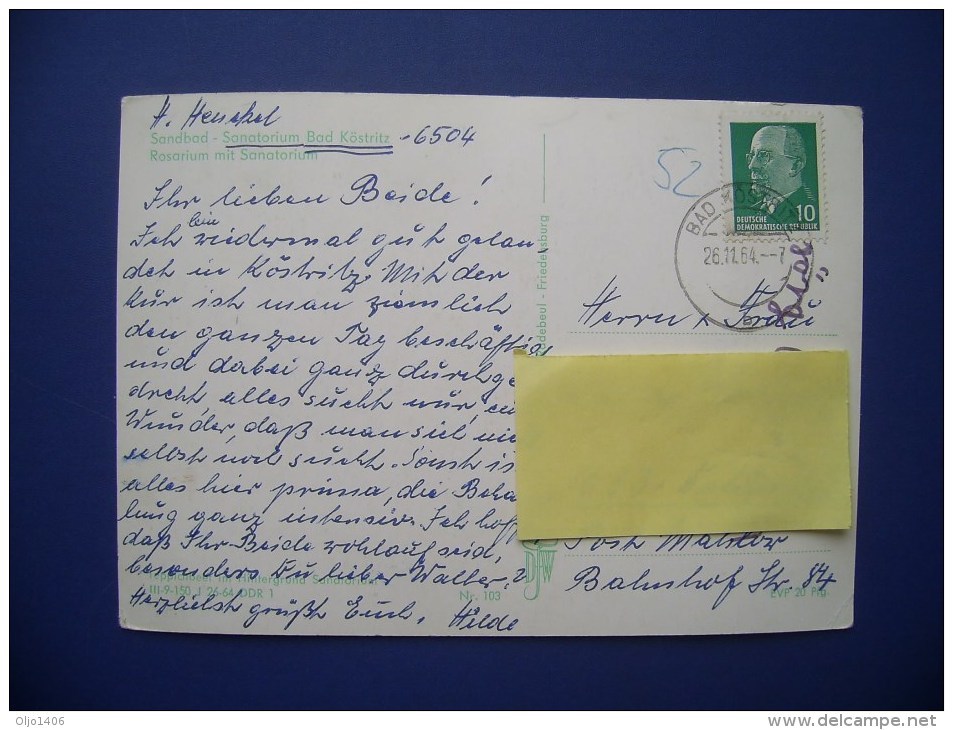 H. Henschel
Sandbad - Sanatorium Bad Köstritz - 6504
Rosarium mit Sanatorium
Ihr lieben Beide!
Ich bin wiedermal gut gelan
det in Köstritz. Mit der
Kur ist man ziemlich
den ganzen Tag beschäftig
und dabei ganz durchge
dreht alles sucht nur, ein
Wunder, daß man sich nic
selbst noch sucht. Sonst is
alles hier prima, die Beha
lung ganz intensiv. Ich hof
daß Ihr Beide wohlauf seid,
besonders Du lieber Walter?
Herzlichst grüßt Euch, Hilde
Teppichbeet im Hintergrund Sanatorium
III-9-150 J 26-64 DDR 1
Nr. 103
debeul - Friedensburg
52
DEUTSCHE
DEMOKRATISCHE REPUBLIK
10
BAD KÖSTRITZ
26.11.64.--7
Herrn u. Frau
Post Mahlow
Bahnhof Str. 84
EVP 20 Pfg.
Oljo1406
delcampe.net